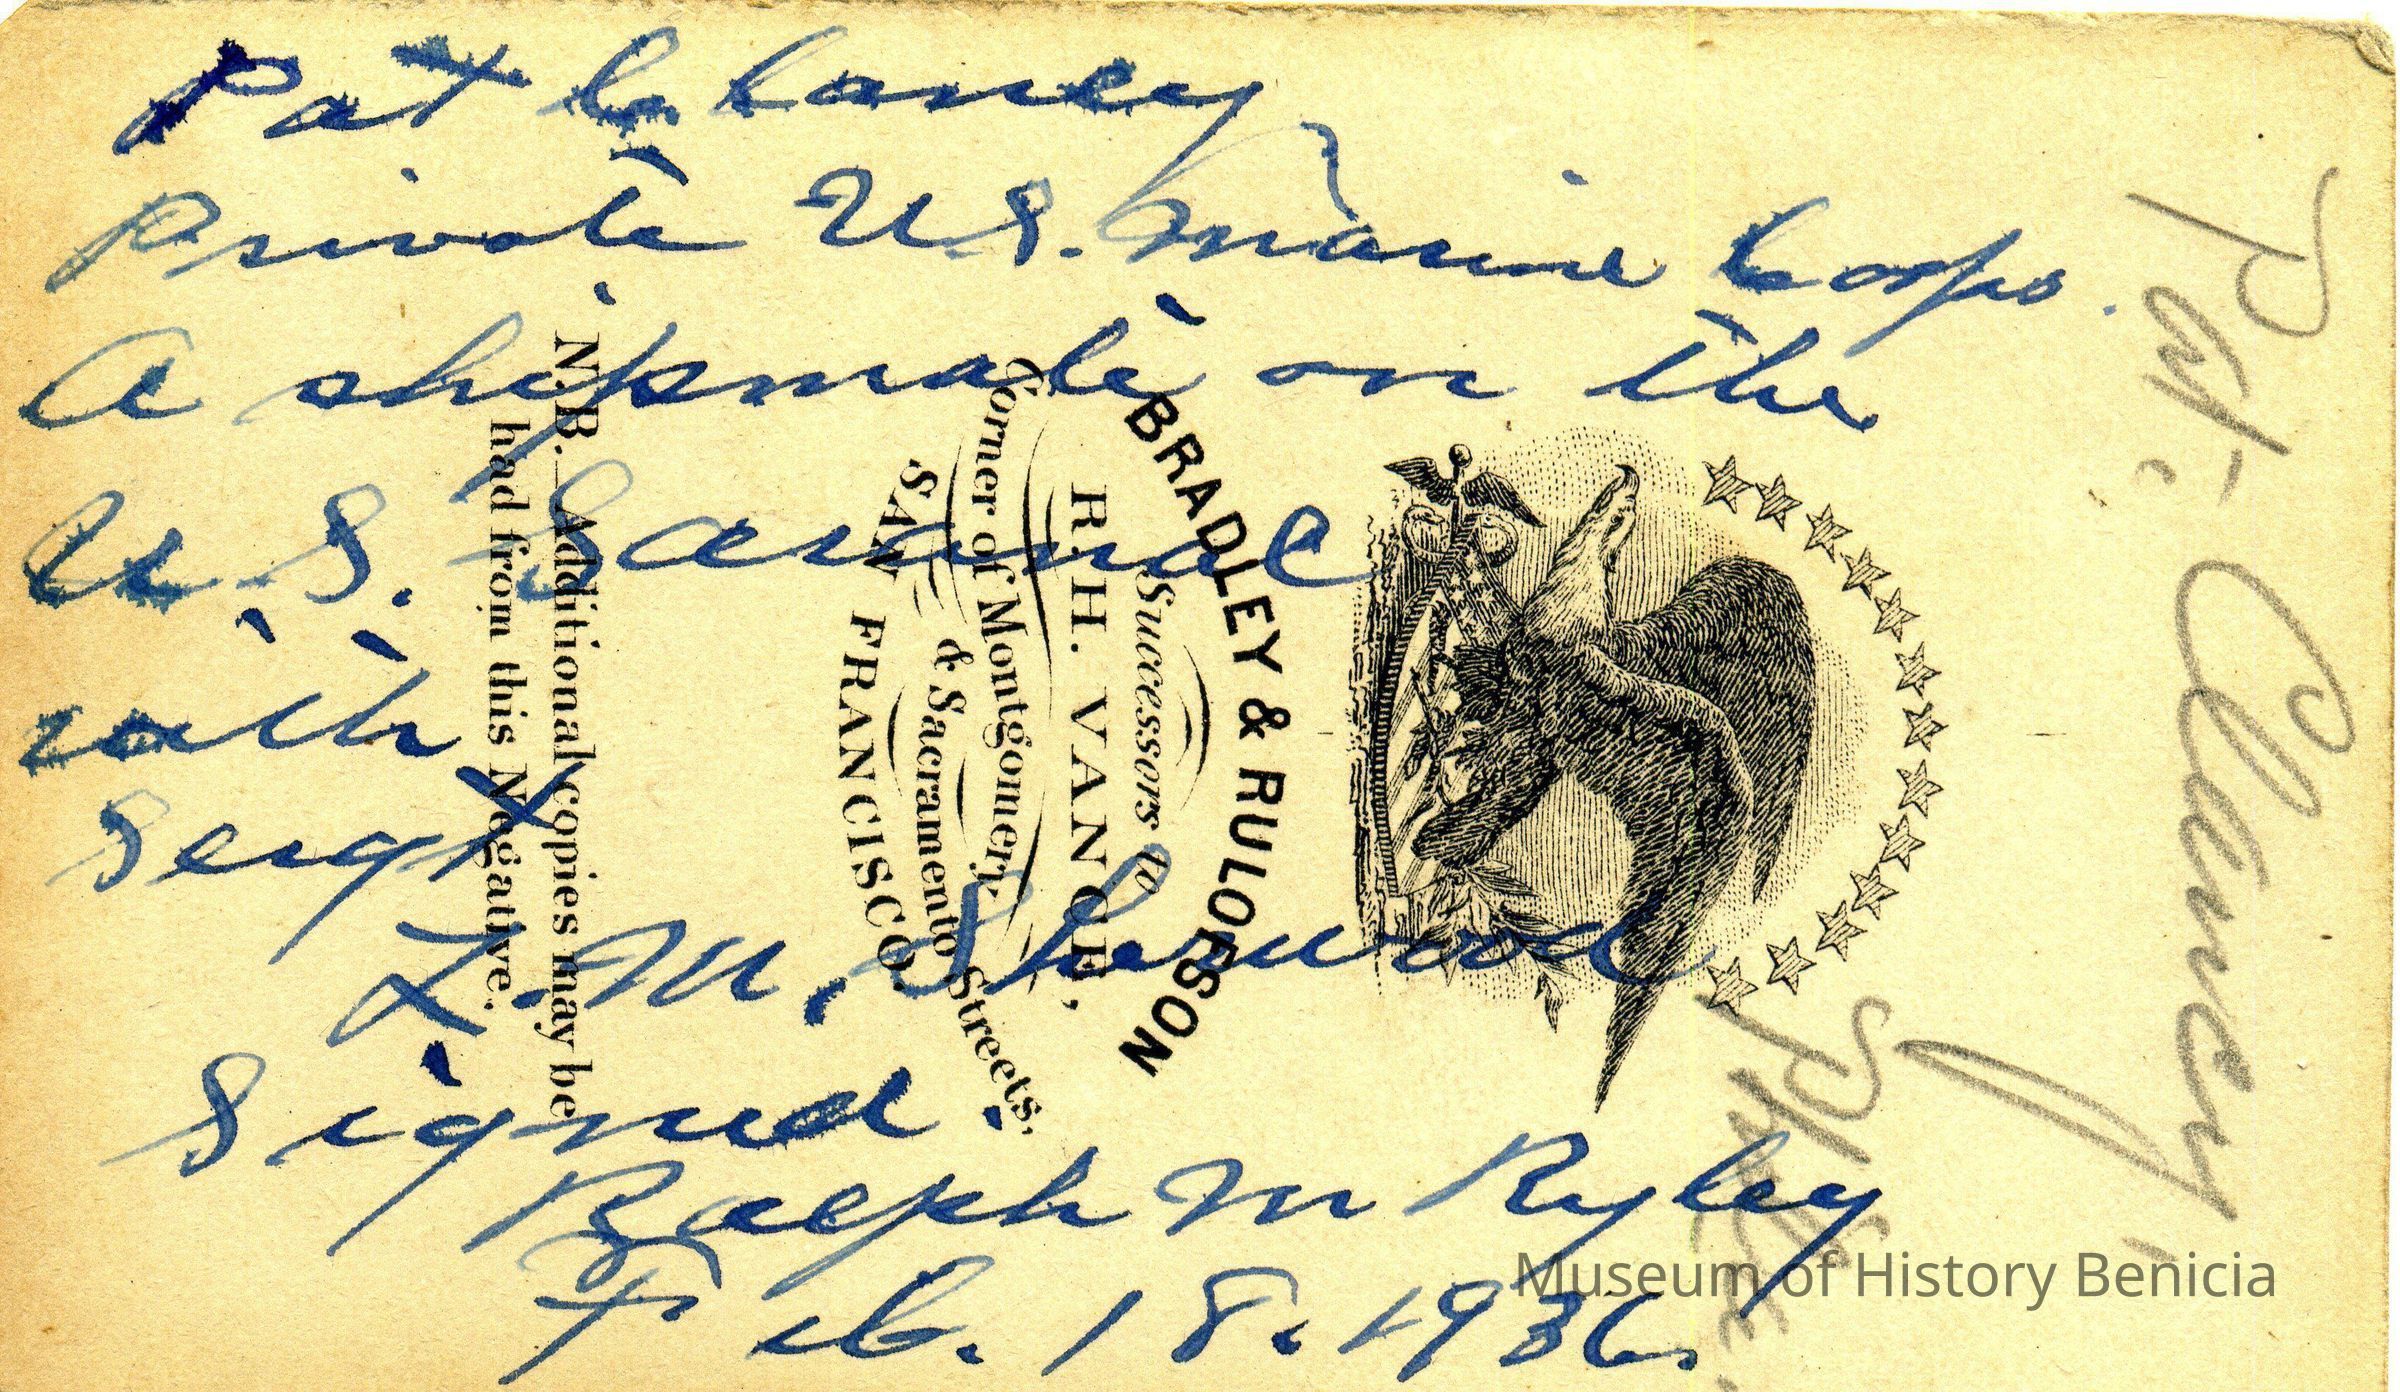 Pat Clancy
Private U.S. Marine Corps.
A shipmate on the
U.S. Saranac
with
Sergt
L. M. Sherwood
Signed.
Ralph M Ryley
Feb. 18. 1936.
Pat. Clancy
BRADLEY & RULOFSON
Successors to
R. H. VANCE,
Corner of Montgomery
& Sacramento Streets,
SAN FRANCISCO.
N.B.—Additional copies may be
had from this Negative.
Museum of History Benicia